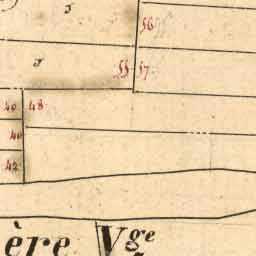 56
55 57
40 48
40
42
ère Vge